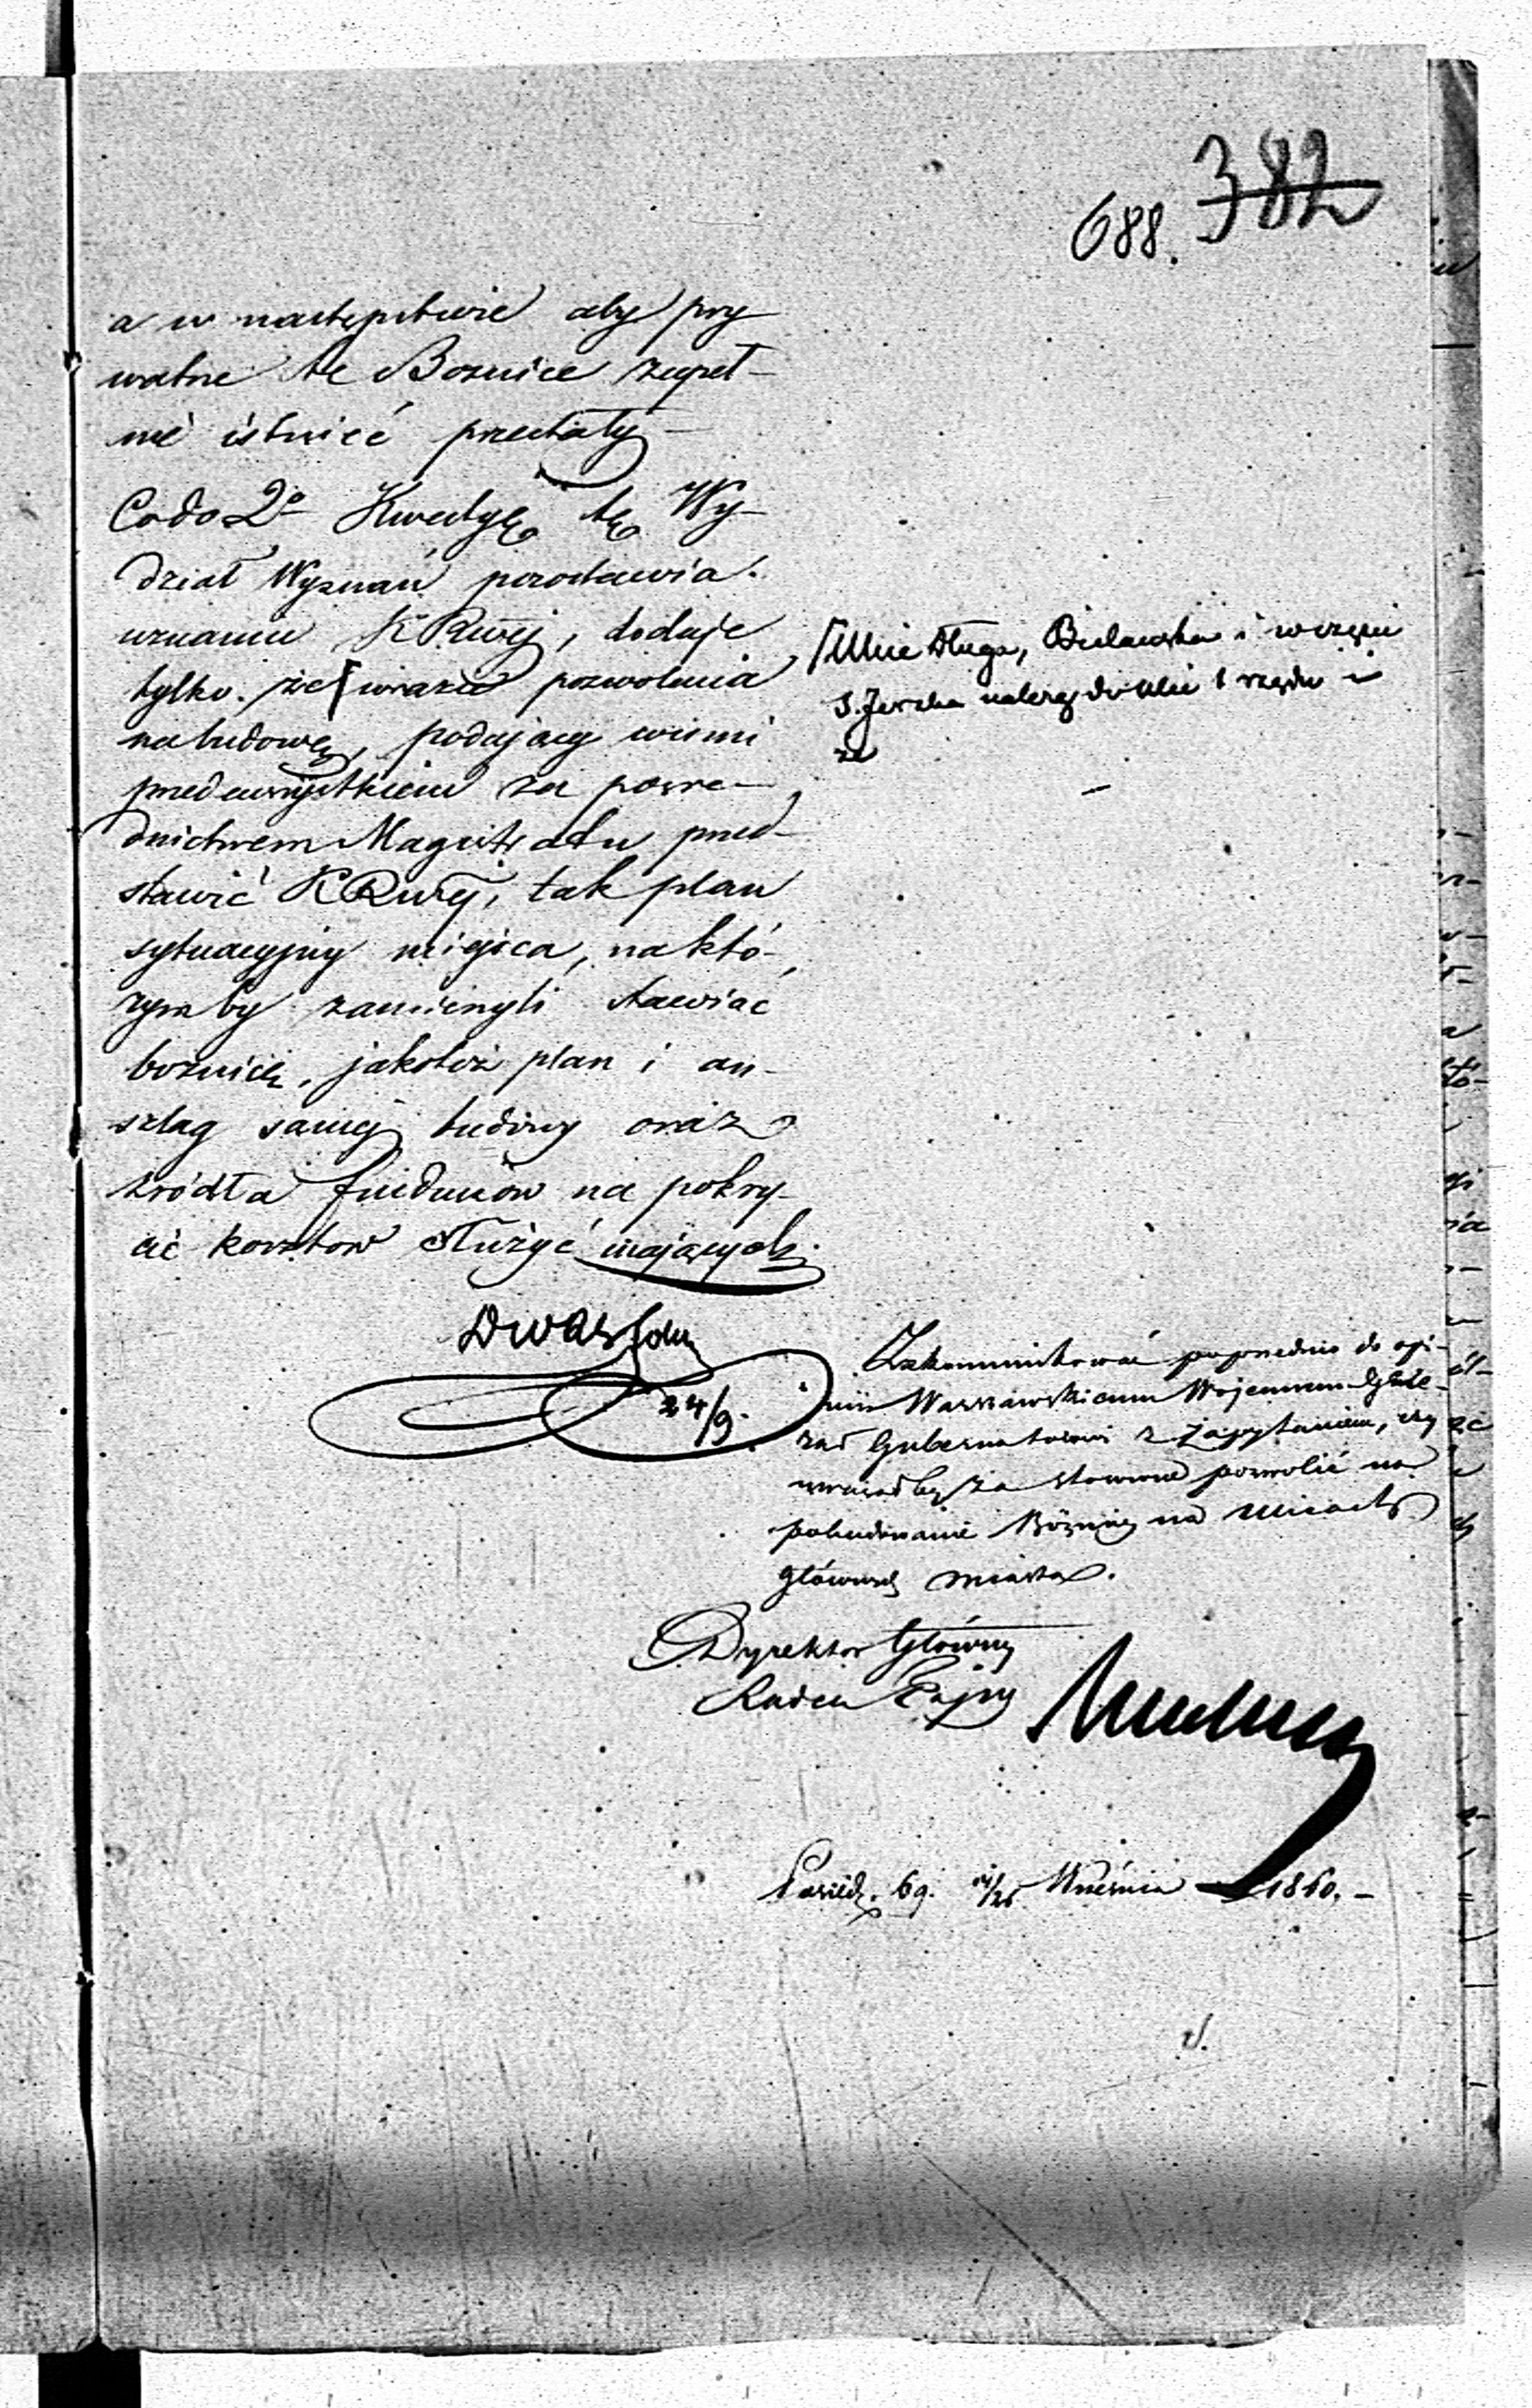 688. 382
a w następstwie aby pry
watne te Boznice zupeł-
nie istnieć przestały
Co do 2º Kwestyę tę Wy-
dział Wyznań pozostawia
uznaniu KRwej, dodaje
tylko. że wrazie pozwolenia
na budowę, podający winni
przedewszystkiem za pośre-
dnictwem Magistratu przed-
stawić KRwej, tak plan
sytuacyjny miejsca, na któ-
rym by zamierzyli stawiać
boznicę, jakoteż plan i an-
szlag samej budowy oraz
źródła funduszów na pokry-
cie kosztow służyć mających.
Ulice Długa, Bielańska i w części
S. Jerska należą do Ulic 1 rzędu i
że
24/9.
Zakommunikować poprzednio do opi-
nii Warszawskiemu Wojennemu Gene-
rał Gubernatorowi z zapytaniem, czy
uważałby za stosowne pozwolić na
pobudowanie Bóżnicy na ulicach
głównych miasta.
Dyrektor Główny
Radca Tajny
Posiedz. 69. 14/26 Września 1860.